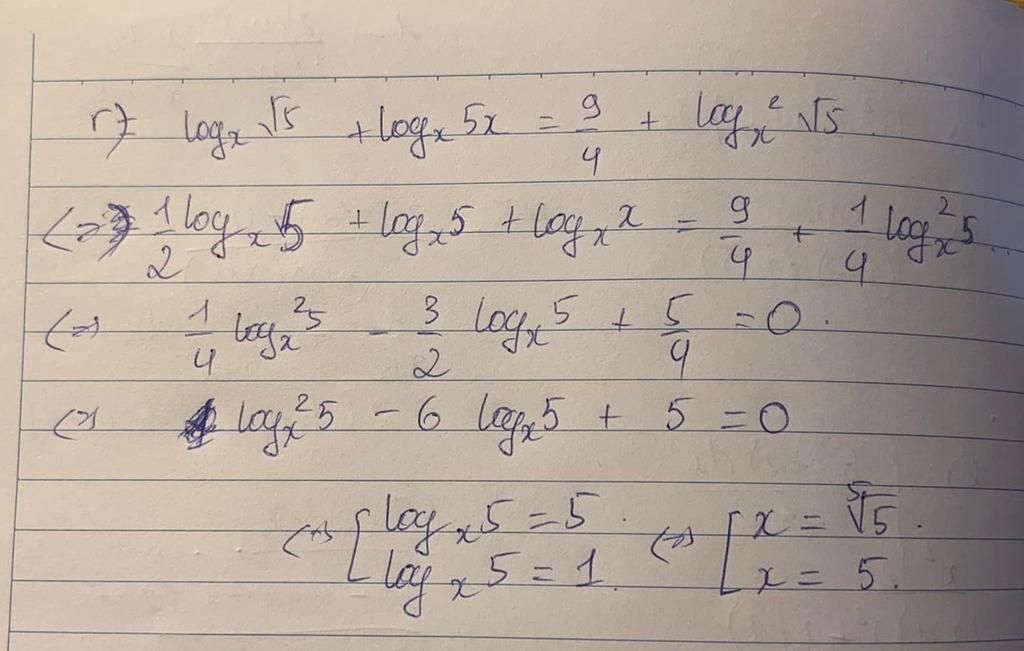 г) log_x √5 + log_x 5x = 9/4 + log_x² √5
(=> 1/2 log_x 5 + log_x 5 + log_x x = 9/4 + 1/4 log_x² 5
(=) 1/4 log_x² 5 - 3/2 log_x 5 + 5/4 = 0.
(=) log_x² 5 - 6 log_x 5 + 5 = 0
(=) [ log_x 5 = 5. (=) [ x = ⁵√5.
log_x 5 = 1. x = 5.